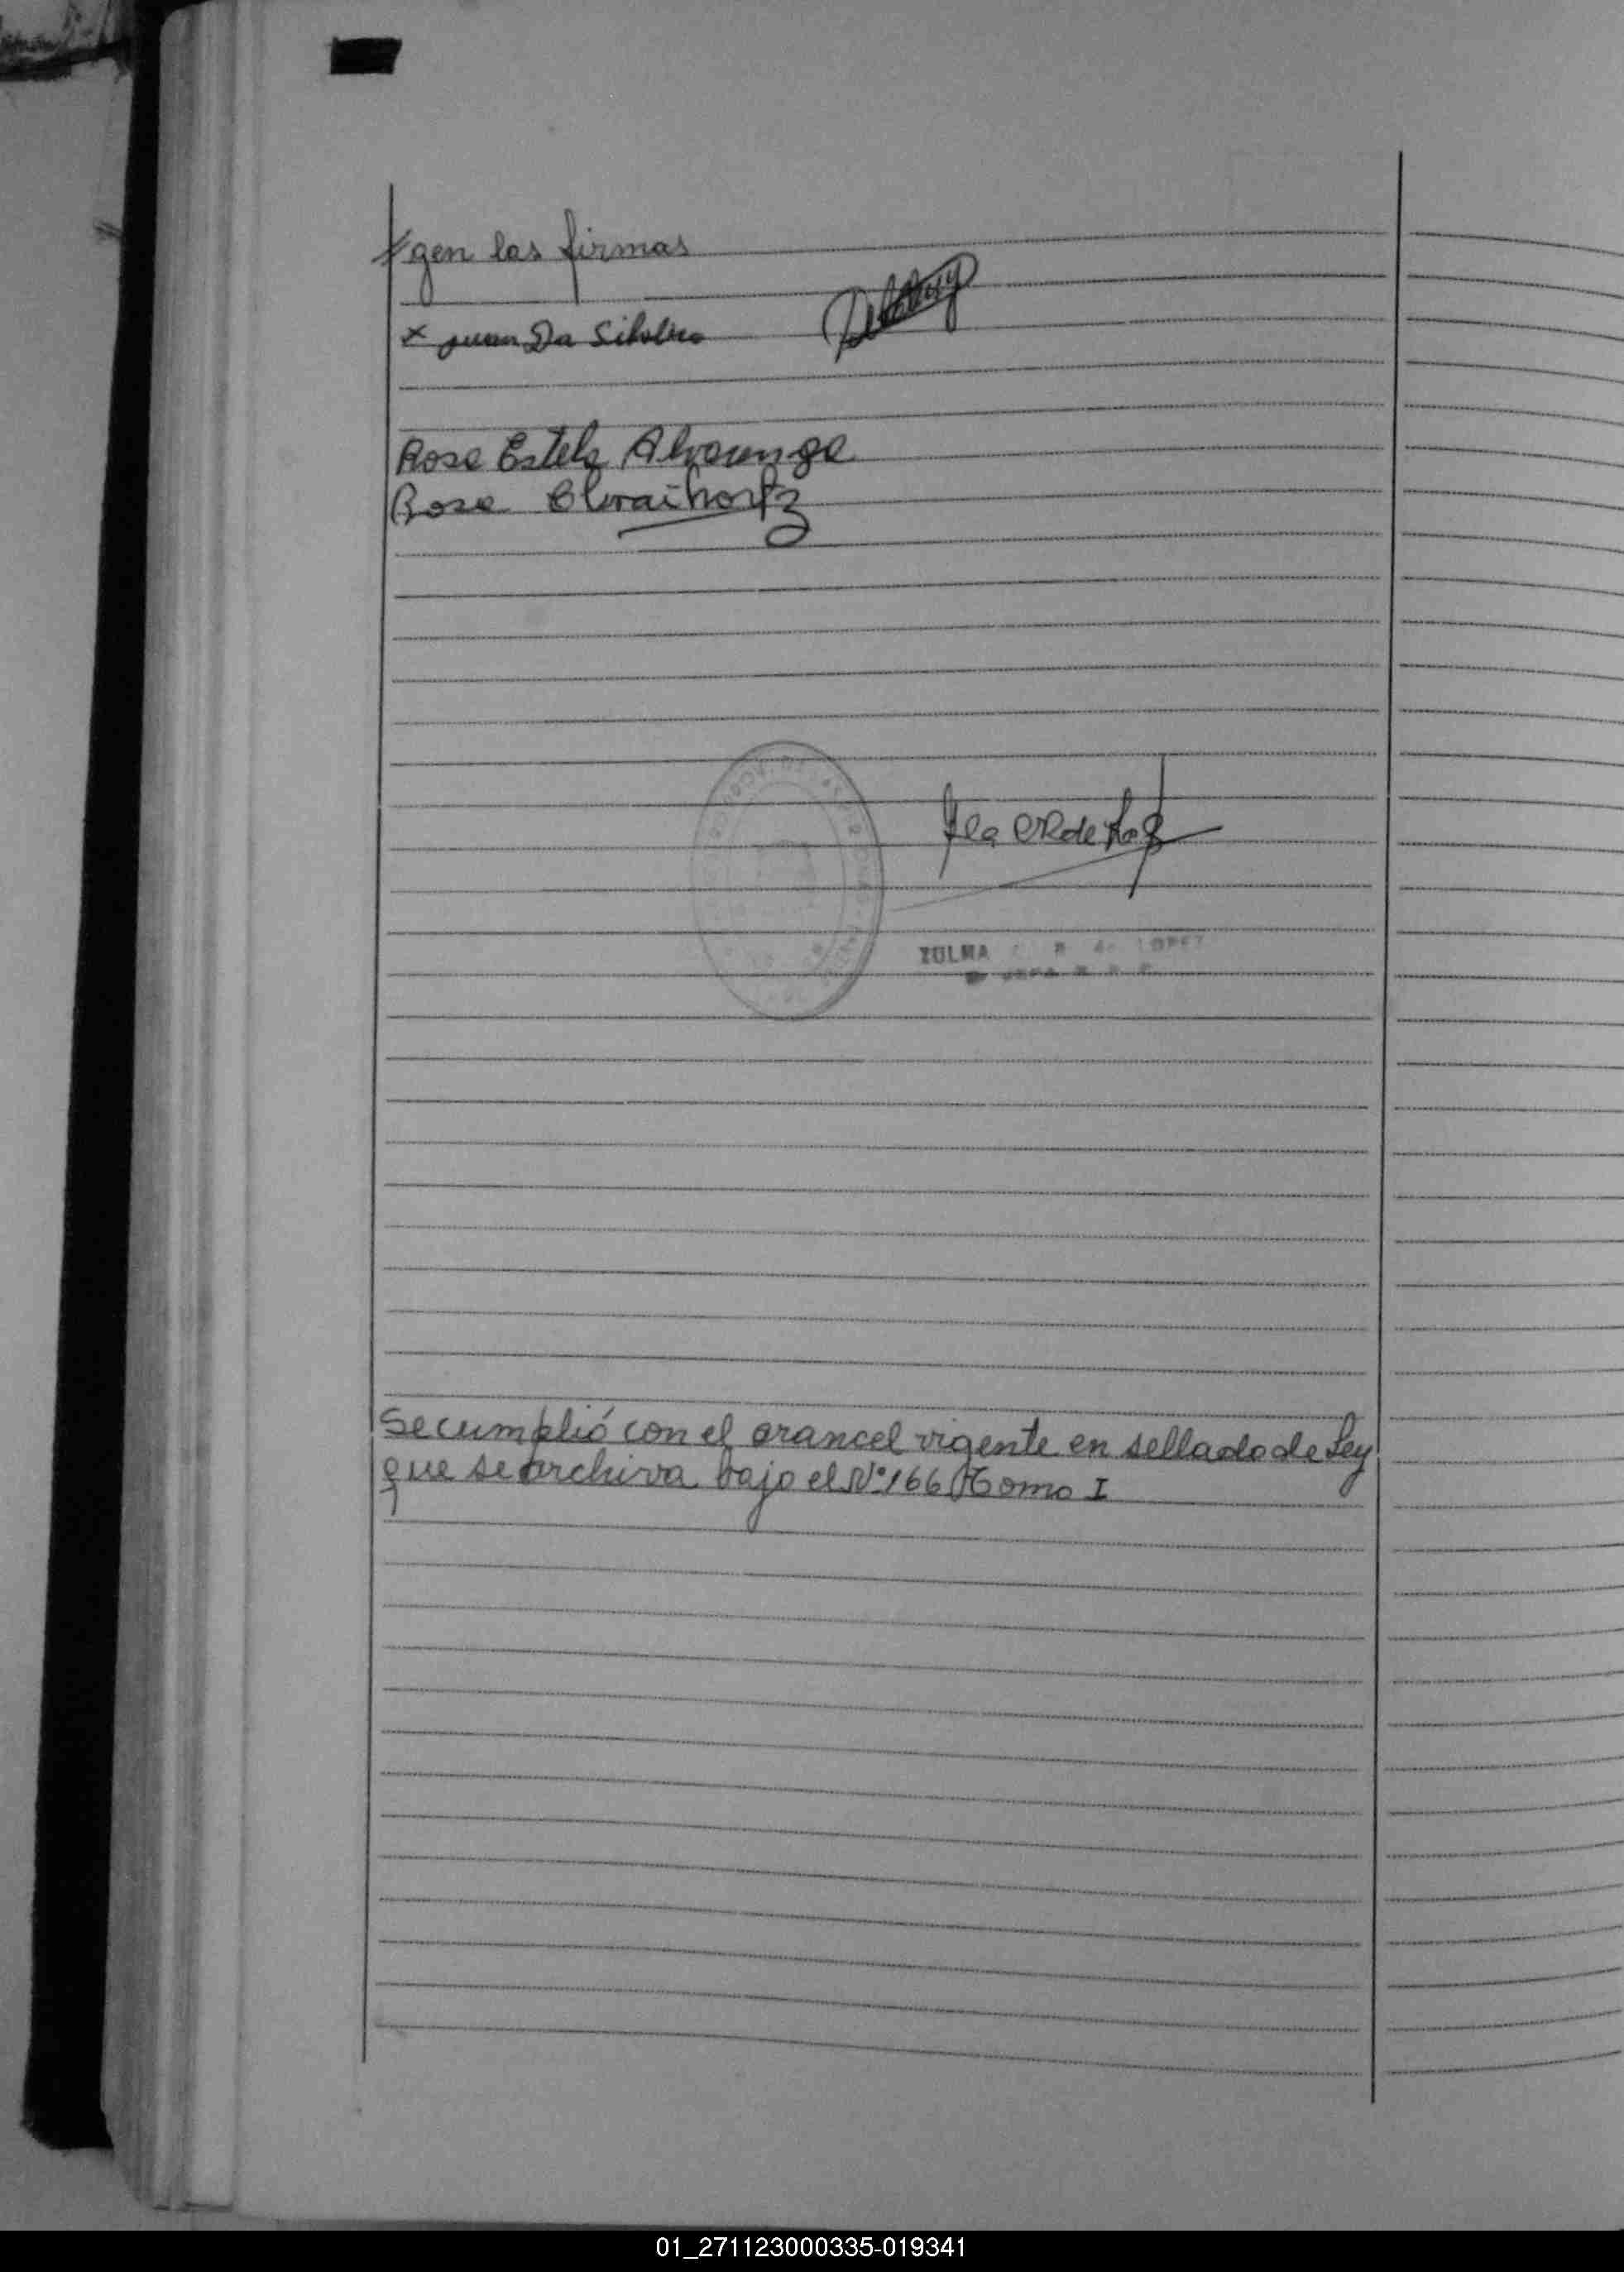 gen las firmas
x Juan Da Silveira
Rosa Estela Alvarenga
Rosa
ZULMA LOPEZ
Se cumplió con el arancel vigente en sellado de Ley
que se archiva bajo el Nº 166 Tomo I
01_271123000335-019341